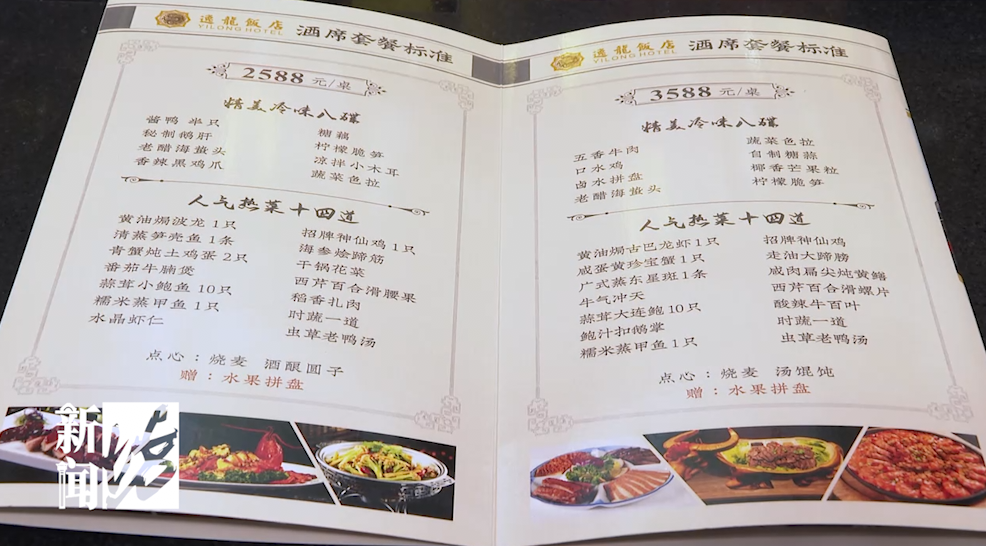 逸龍飯店
YILONG HOTEL
酒席套餐标准
2588 元/桌
精美冷味八碟
酱鸭 半只
秘制鹅肝
老醋海蜇头
香辣黑鸡爪
糖藕
柠檬脆笋
凉拌小木耳
蔬菜色拉
人气热菜十四道
黄油焗波龙1只
清蒸笋壳鱼1条
青蟹炖土鸡蛋2只
番茄牛腩煲
蒜茸小鲍鱼10只
糯米蒸甲鱼1只
水晶虾仁
招牌神仙鸡1只
海参烩蹄筋
干锅花菜
西芹百合滑腰果
稻香扎肉
时蔬一道
虫草老鸭汤
点心：烧麦 酒酿圆子
赠：水果拼盘
逸龍飯店
YILONG HOTEL
酒席套餐标准
3588 元/桌
精美冷味八碟
五香牛肉
口水鸡
卤水拼盘
老醋海蜇头
蔬菜色拉
自制糖蒜
椰香芒果粒
柠檬脆笋
人气热菜十四道
黄油焗古巴龙虾1只
咸蛋黄珍宝蟹1只
广式蒸东星斑1条
牛气冲天
蒜茸大连鲍10只
鲍汁扣鹅掌
糯米蒸甲鱼1只
招牌神仙鸡
走油大蹄膀
咸肉扁尖炖黄鳝
西芹百合滑螺片
酸辣牛百叶
时蔬一道
虫草老鸭汤
点心：烧麦 汤馄饨
赠：水果拼盘
新闻